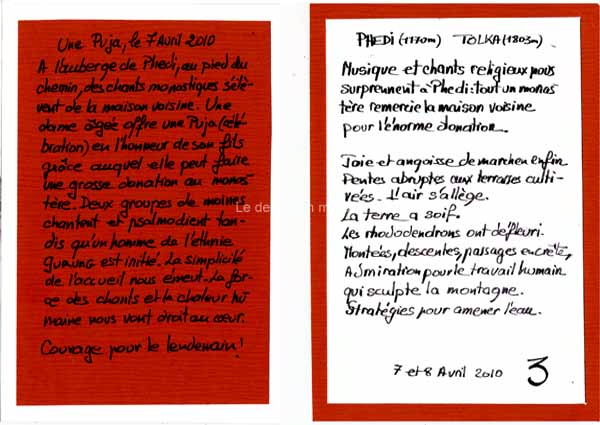 Une Puja, le 7 Avril 2010
A l'auberge de Phedi, au pied du
chemin, des chants monastiques s'élè-
vent de la maison voisine. Une
dame âgée offre une Puja (célé-
bration) en l'honneur de son fils
grâce auquel elle peut faire
une grosse donation au monas-
tère. Deux groupes de moines
chantent et psalmodient tan-
dis qu'un homme de l'ethnie
GURUNG est initié. La simplicité
de l'accueil nous émeut. La for-
ce des chants et la chaleur hu
maine nous vont droit au cœur.
Courage pour le lendemain!
Le de
PHEDI (1170m) TOLKA (1803m)
Musique et chants religieux nous
surprennent à Phedi: tout un monas
tère remercie la maison voisine
pour l'énorme donation.
Joie et angoisse de marcher enfin
Pentes abruptes aux terrasses culti-
vées. L'air s'allège.
La terre a soif.
Les rhododendrons ont défleuri.
Montées, descentes, passages en crête,
Admiration pour le travail humain
qui sculpte la montagne.
Stratégies pour amener l'eau.
7 et 8 Avril 2010
3